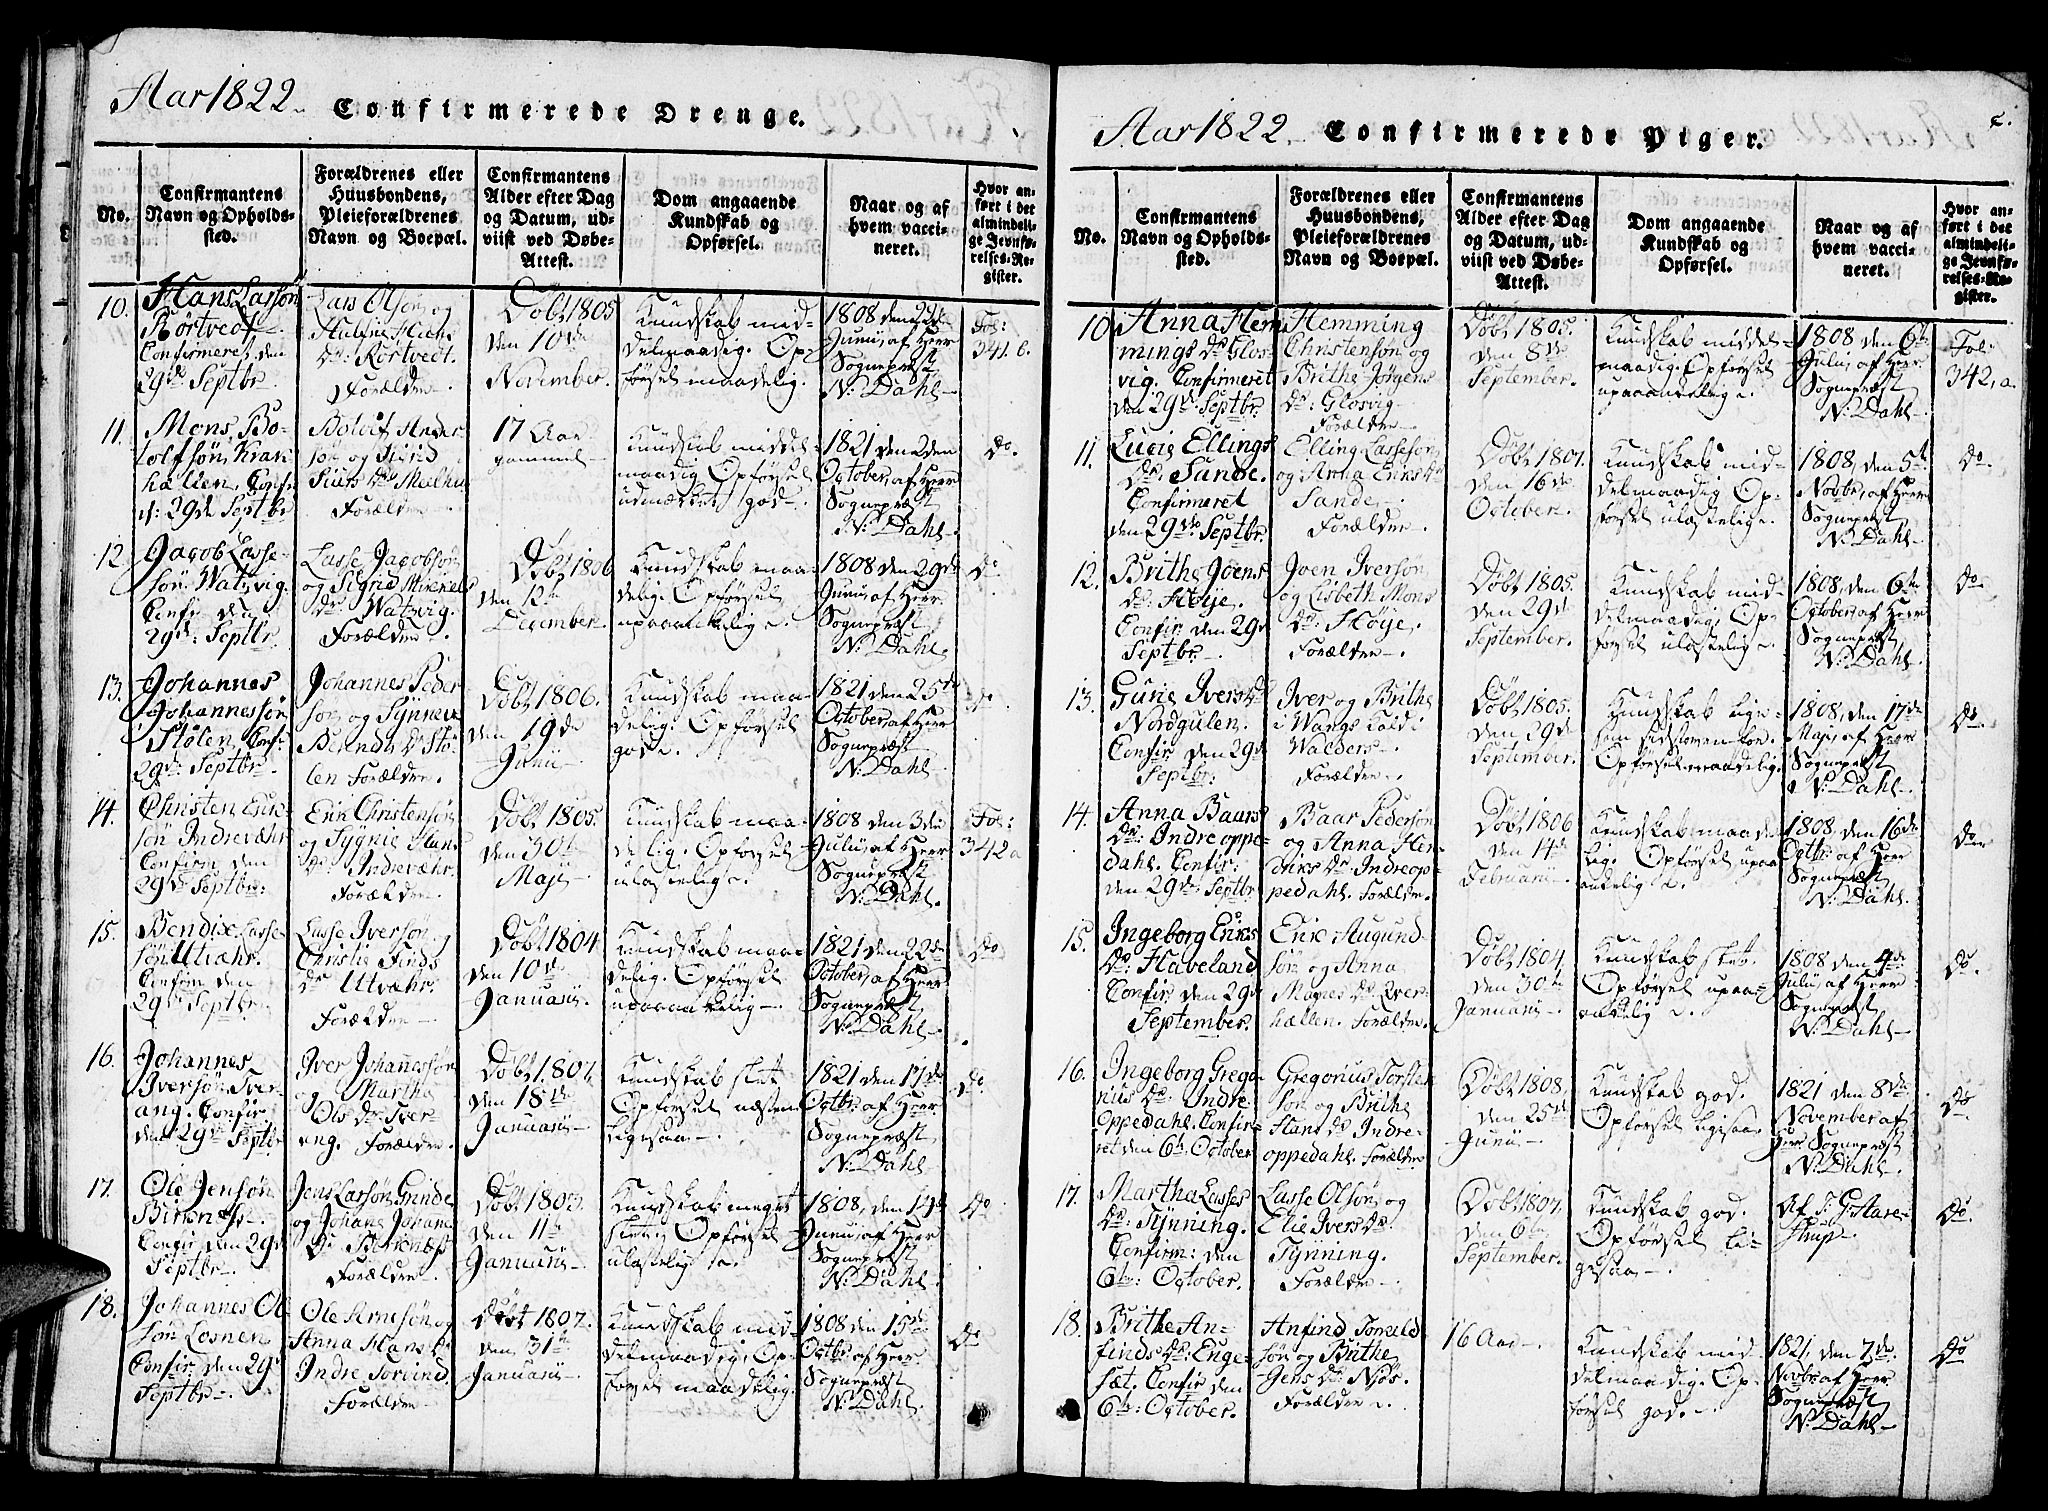 Aar 1822. Confirmerede Drenge.
No.
Confirmantens
Navn og Opholds-
sted.
Forældrenes eller
Huusbondens,
Pleieforældrenes
Navn og Boepæl.
Confirmantens
Alder efter Dag
og Datum, ud-
viist ved Døbe-
Attest.
Dom angaaende
Kundskab og
Opførsel.
Naar og af
hvem vacci-
neret.
Hvor an-
ført i det
almindeli-
ge Jevnfø-
relses-Re-
gister.
10.
Hans Larsøn
Rörtvedt.
Confirmeret den
29de Septbr.
Lars Olsøn og
Hans
Dr. Rörtvedt.
Forældre
Döbt 1805
den 10de
November.
Kundskab mid-
delmaadig. Op-
førsel maadelig.
1808 den 22de
Junii, af Herr
Sognepræst
N: Dahl
Fol:
341 b.
11.
Mons Bo-
tolfsøn, Krak
hællen, Conf:
d: 29de Septbr
Botolf Ander
søn og Sigrid
Siurs Dr Meelhus
Forældre
17 Aar
gammel
Kundskab middel-
maadig Opførsel
udmærket god
1821 den 2den
October, af Herr
Sognepræst
N: Dahl
Do.
12
Jacob Lasse-
søn Watsvig.
Confir den
29de Septbr.
Lasse Jacobsøn
og Sigrid Mikkels
dr. Watsvig.
Forældre.
Döbt 1806
den 12te
December.
Kundskab maa-
delig. Opførsel
upaaankelig
1808 den 29de
Junii, af Herr
Sognepræst
N: Dahl.
Do
13.
Johannes
Johannessøn
Stølen, Conf:
29de Septbr.
Johannes Peder
søn og Synneve
Bernds Dr Stö-
len Forældre.
Döbt 1806.
den 19de
Junii
Kundskab maa-
delig. Opførsel
god.
1821 den 25de
October, af Herr
Sognepræst
N: Dahl
Do
14.
Christen Erik-
søn Indreværhr
Confirm den
29de Septbr:
Erik Christensøn
og Sygnie Hans
Dr. Indreværhr.
Forældre.
Döbt 1805.
den 30te
Maji
Kundskab maa-
delig. Opførsel
ulastelig
1808 den 3die
Julii, af Herr
Sognepræst
N: Dahl.
Fol:
342 a
15.
Bendix Lasse-
søn Utværhr.
Confirm den
29de Septbr.
Lasse Iversøn og
Christie Finds
dr Utværhr.
Forældre
Döbt 1804.
den 10de
Januarii.
Kundskab maa-
delig. Opførsel
upaaankelig
1821 den 22de
October, af Herr
Sognepræst
N: Dahl
Do
16.
Johannes
Iversøn Tver-
ang. Confir
den 29de Septbr
Iver Johannessøn
og Martha
Ols dr Tver
eng. Forældre.
Döbt 1807.
den 18de
Januarii
Kundskab slet
Opførsel næsten
ligesaa
1821 den 17de
Octbr. af Herr
Sognepræst
N: Dahl
Do
17.
Ole Jensøn
Birknæs.
Confir den 29de
Septbr.
Jens Larsøn Grinde
og Johane Johans
Dr. Birknæs
Forældre
Döbt 1805.
den 11te
Januarii
Kundskab meget
slet Opførsel
ulastelig
1808, den 14de
Junii af Herr
Sognepræst
N: Dahl
Do
18.
Johannes Ol
søn Losnen
Confir. den 29de
Septbr.
Ole Arnesøn og
Anna Hans D.
Indre Torvind.
Forældre
Döbt 1807.
den 31te
Januarii
Kundskab mid-
delmaadig, Op-
førsel maadelig.
1808 den 15de
Octbr. af Herr
Sognepræst
N: Dahl.
Do
Aar 1822. Confirmerede Piger.
No.
Confirmantens
Navn og Opholds-
sted.
Forældrenes eller
Huusbondens,
Pleieforældrenes
Navn og Boepæl.
Confirmantens
Alder efter Dag
og Datum, ud-
viist ved Døbe-
Attest.
Dom angaaende
Kundskab og
Opførsel.
Naar og af
hvem vacci-
neret.
Hvor an-
ført i det
almindeli-
ge Jevnfø-
relses-Re-
gister.
10
Anna Hem
mings Dr Glos-
vig. Confirmeret
den 29de Septbr.
Hemming
Christensøn og
Brithe Jörgens
Dr: Glosvig
Forældre
Döbt 1805.
den 8de
September.
Kundskab middel-
maadig. Opførsel
upaaankelig
1808 den 6te
Julii, af Herr
Sognepræst
N: Dahl
Fol:
342, a.
11.
Lucie Ellings
Dr. Sande.
Confirmeret
den 29de Septbr.
Elling Lassesøn
og Anna Eriks Dr
Sande,
Forældre
Döbt 1807.
den 16de
October.
Kundskab mid-
delmaadig Op-
førsel ulastelig
1808, den 5te
Novbr, af Herr
Sognepræst
N: Dahl
Do
12.
Brithe Joens
dr. Höije.
Confir, den 29de
Septbr.
Joen Iversøn
og Lisbeth Mons
dr: Höije.
Forældre
Döbt 1805.
den 29de
September.
Kundskab mid-
delmaadig, Op-
førsel ulastelig
1808, den 6te
October, af Herr
Sognepræst
N: Dahl
Do
13.
Gurie Ivers Dr
Nordgulen.
Confir, den 29de
Septbr:
Iver og Brithe
i Wangs Kald i
Walders
Forældre.
Döbt 1805.
den 29de
September.
Kundskab lige-
som sidstomen
Opførsel maadelig.
1808, den 17de
Maji, af Herr
Sognepræst
N: Dahl
Do
14.
Anna Baars
Dr. Indre oppe-
dahl. Confir:
den 29de Septbr.
Baar Pedersøn
og Anna Hen-
driks Dr Indreop-
pedahl. Forældre.
Döbt 1806
den 14de
Februarii
Kundskab maade
lig. Opførsel upaa
ankelig
1808, den 16de
Octbr. af Herr
Sognepræst
N: Dahl.
Do
15.
Ingeborg Eriks
Dr: Haveland
Confir, den 29de
September.
Erik Augund-
søn og Anna
Magnes Dr Qver-
hællen. Forældre.
Döbt 1804.
den 30te
Januarii
Kundskab slet.
Opførsel upaa-
ankelig
1808 den 4de
Julii, af Herr
Sognepræst
N: Dahl
Do.
16.
Ingeborg Grego-
rius Dr. Indre
Oppedahl. Confir-
ret den 6te October
Gregorius Torsten
søn og Brithe
Hans Dr Indre-
oppedahl. Forældre
Döbt 1808,
den 25de
Junii
Kundskab god.
Opførsel ligesaa
1821 den 8de
November af
Herr Sognepræst
N: Dahl
Do
17.
Martha Lasses
Dr: Tynning.
Confirm: den
6te: October.
Lasse Olsøn og
Elie Ivers Dr.
Tynning.
Forældre
Döbt 1807.
den 6te
September.
Kundskab god.
Opførsel li-
gesaa
Af
Do.
18.
Brithe An-
finds Dr: Enge-
sæt, Confir den
6te: October.
Anfind Torvald
søn og Brithe
Jens Dr. Njös.
Forældre
16 Aar
Kundskab mid-
delmaadig. Op-
førsel god.
1821, den 7de
Novbr, af Herr
Sognepræst
N: Dahl
Do